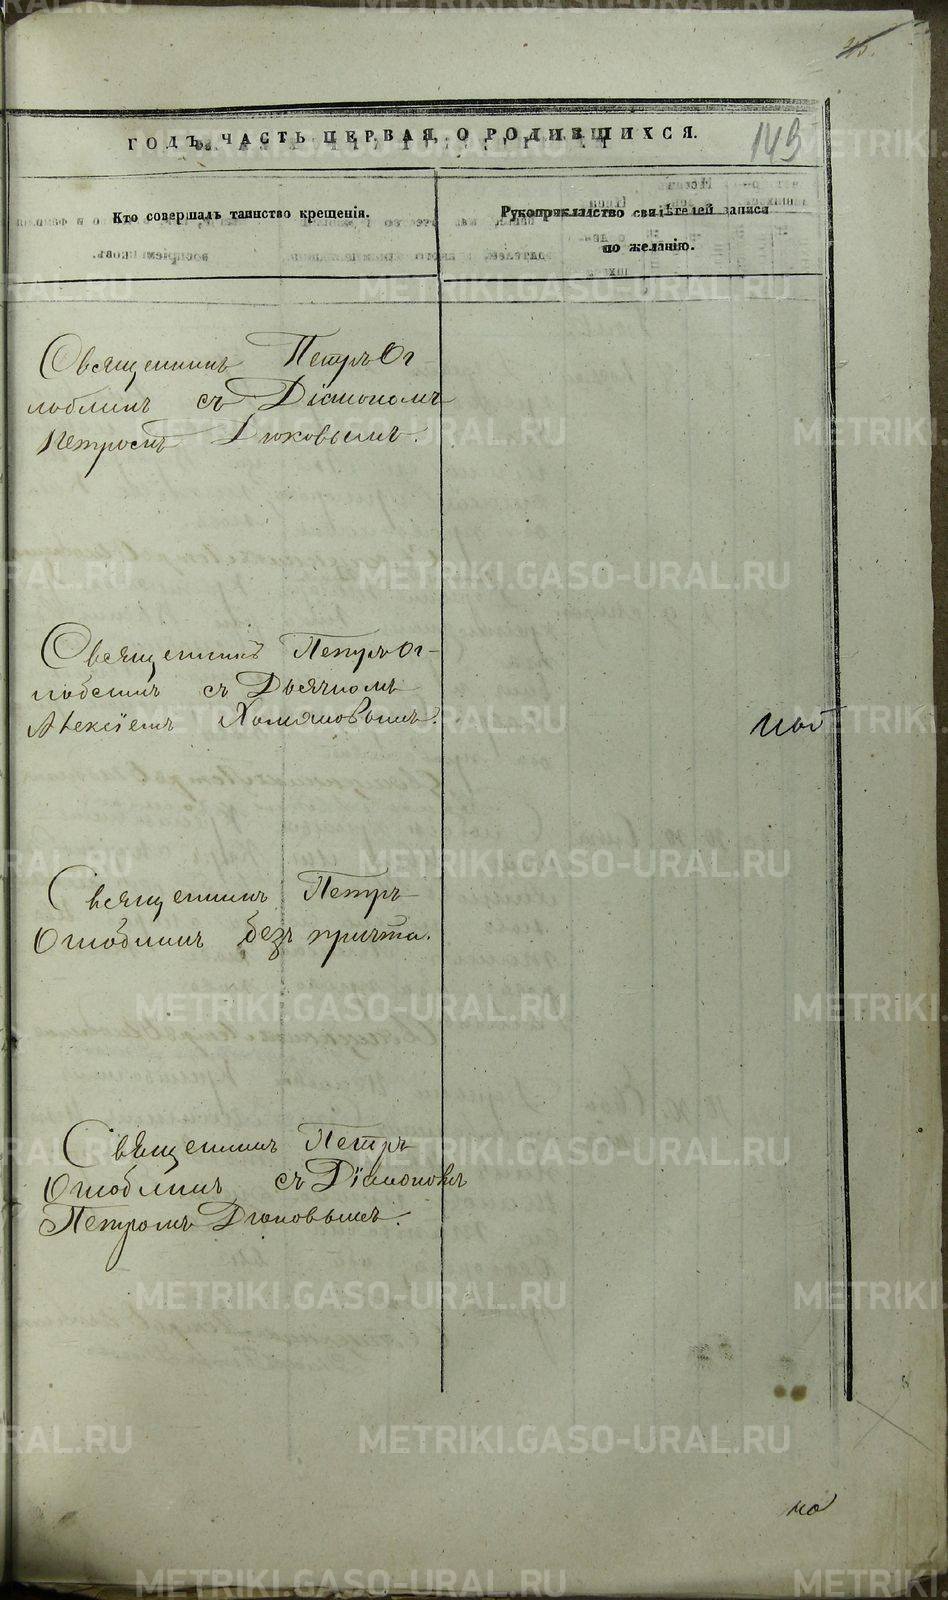 143
ГОДЪ, ЧАСТЬ ПЕРВАЯ, О РОДИВШИХСЯ.
Кто совершалъ таинство крещенія.
Рукоприкладство свидѣтелей записи
по желанію.
Священникъ Петръ Ог-
лоблинъ съ Діакономъ
Петромъ Дюковымъ.
Священникъ Петръ Ог-
лоблинъ съ Дьячкомъ
Алексіемъ Хомяковымъ.
Священникъ Петръ
Оглоблинъ безъ причта.
Священникъ Петръ
Оглоблинъ съ Діакономъ
Петромъ Дюковымъ.
METRIKI.GASO-URAL.RU